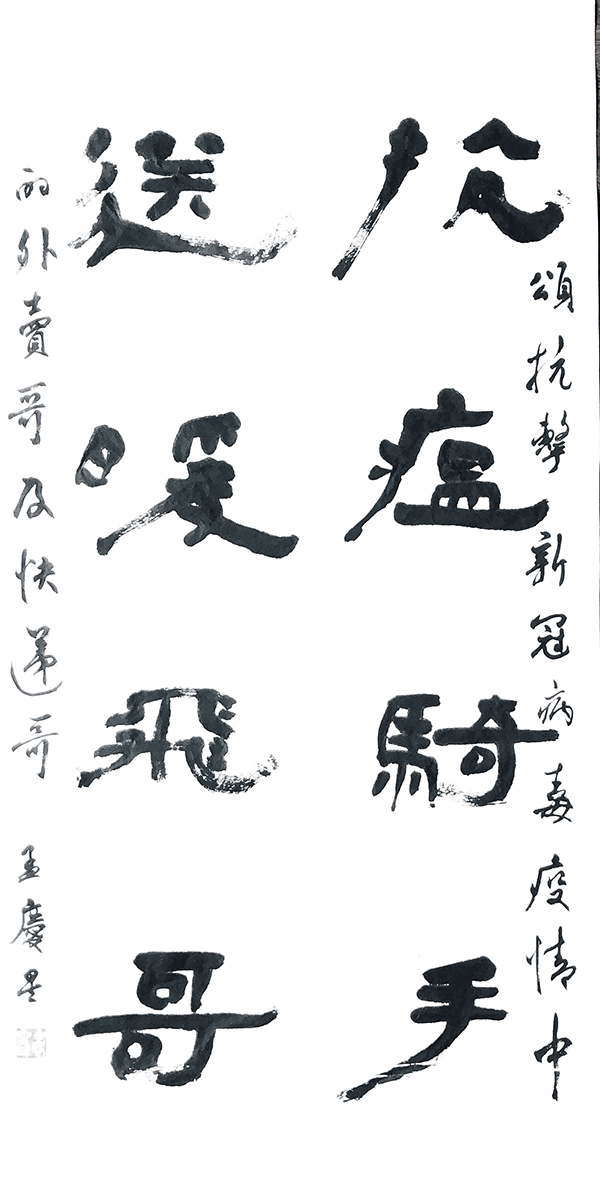 頌抗擊新冠病毒疫情中
抗瘟騎手
送暖飛哥
的外賣哥及快遞哥 孟慶星